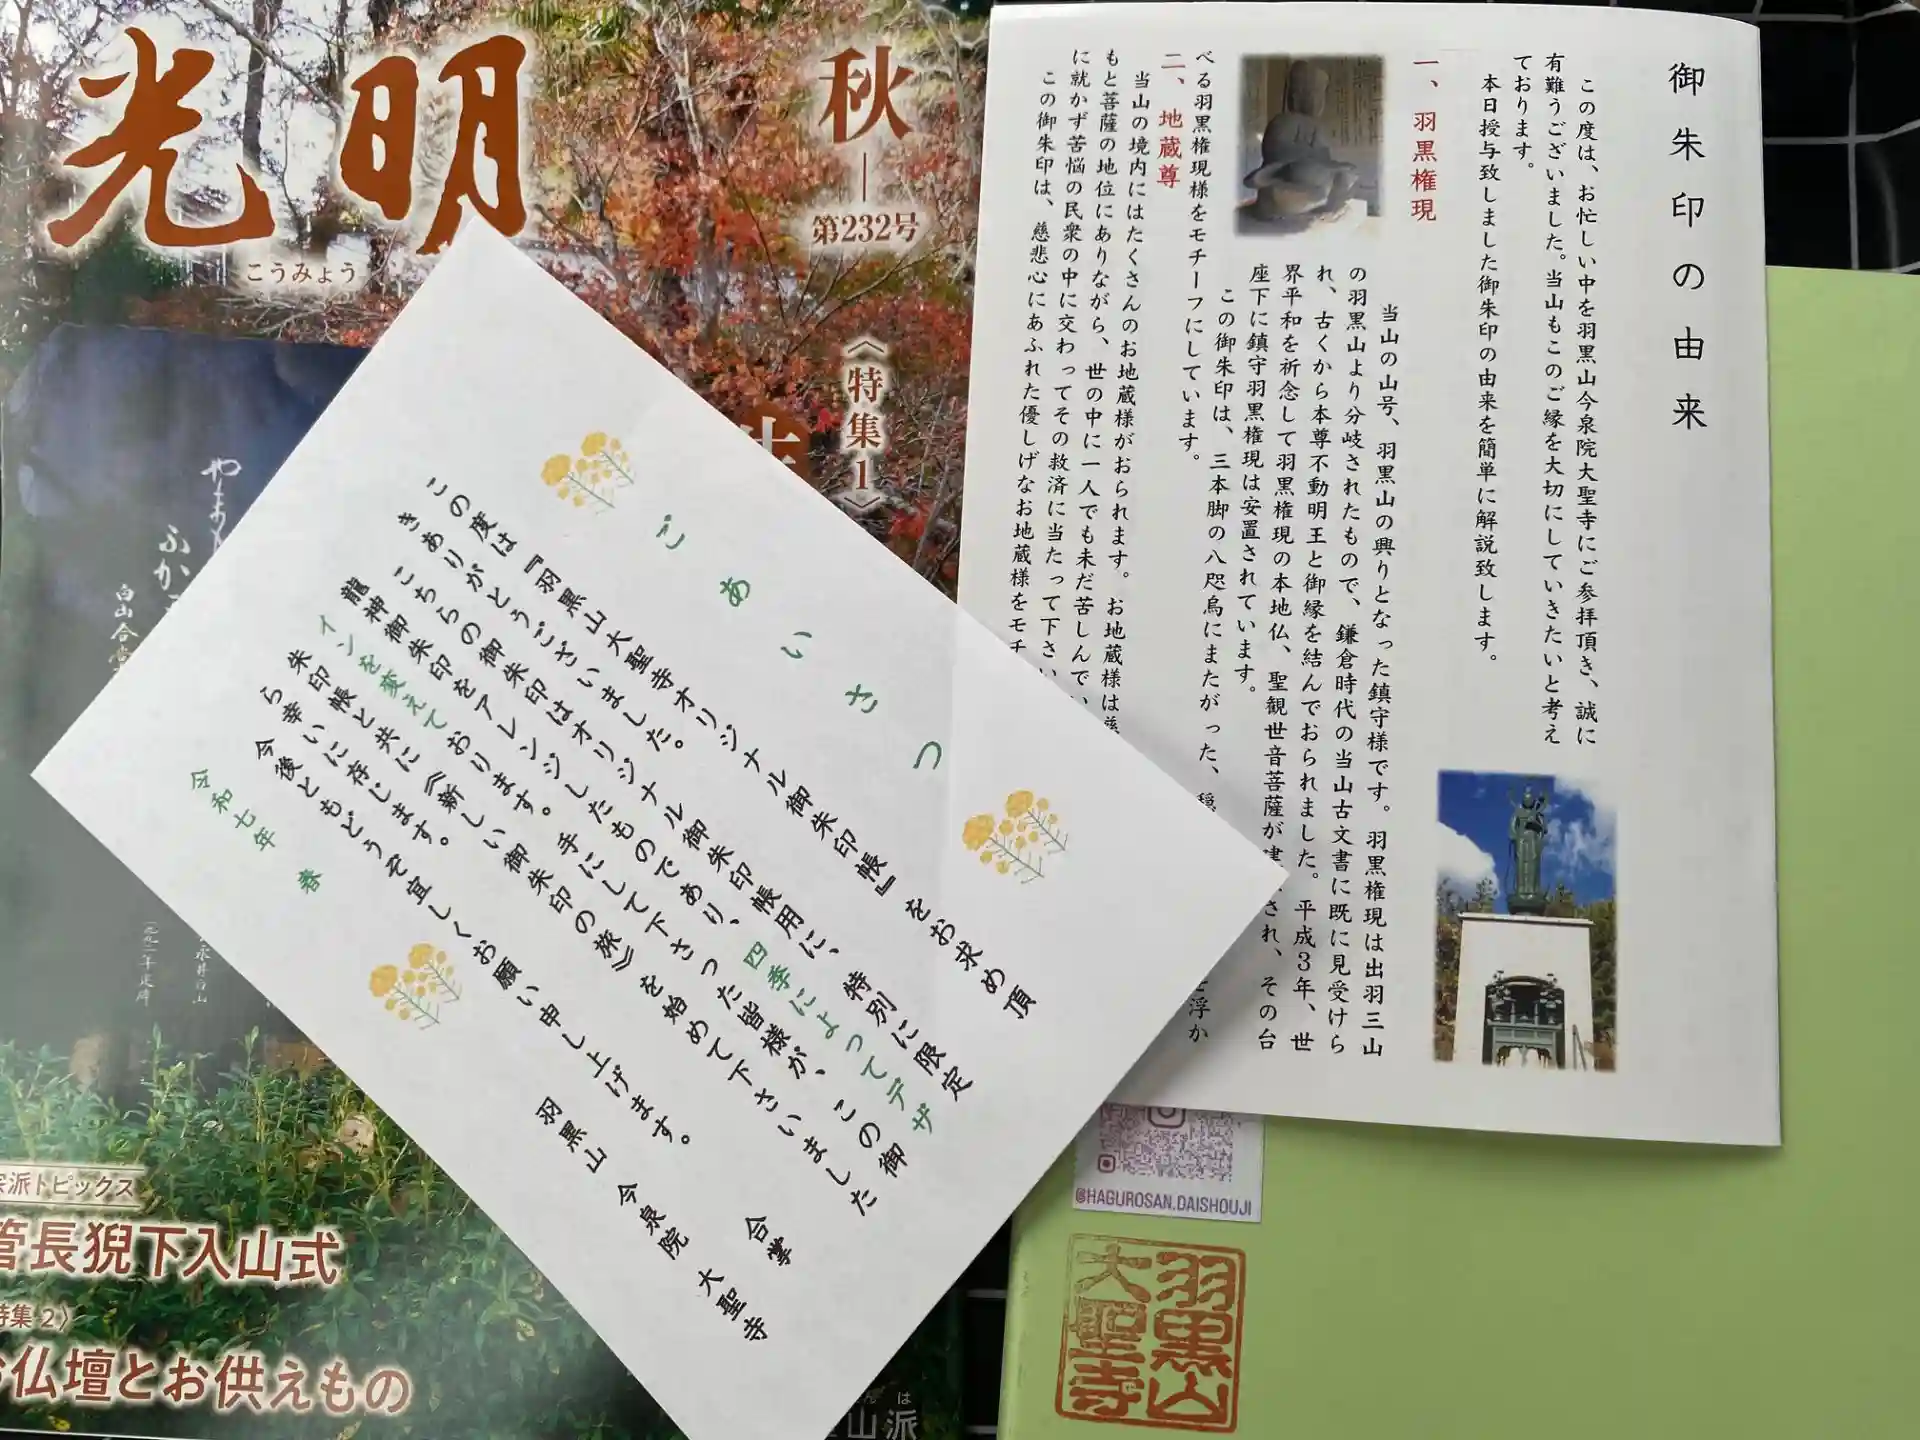 光明
こうみょう
秋
第232号
〈特集1〉
やまも
ふか
白山合掌
宗派トピックス
管長猊下入山式
特集2〉
お仏壇とお供えもの
山派
は
ごあいさつ
この度は『羽黒山大聖寺オリジナル御朱印帳』をお求め頂
きありがとうございました。
こちらの御朱印はオリジナル御朱印帳用に、特別に限定
龍神御朱印をアレンジしたものであり、四季によってデザ
インを変えております。手にして下さった皆様が、この御
朱印帳と共に《新しい御朱印の旅》を始めて下さいました
ら幸いに存じます。
今後ともどうぞ宜しくお願い申し上げます。
合掌
令和七年 春
羽黒山 今泉院 大聖寺
御朱印の由来
この度は、お忙しい中を羽黒山今泉院大聖寺にご参拝頂き、誠に
有難うございました。当山もこのご縁を大切にしていきたいと考え
ております。
本日授与致しました御朱印の由来を簡単に解説致します。
一、羽黒権現
当山の山号、羽黒山の興りとなった鎮守様です。羽黒権現は出羽三山
の羽黒山より分岐されたもので、鎌倉時代の当山古文書に既に見受けら
れ、古くから本尊不動明王と御縁を結んでおられました。平成3年、世
界平和を祈念して羽黒権現の本地仏、聖観世音菩薩が建され、その台
座下に鎮守羽黒権現は安置されています。
この御朱印は、三本脚の八咫烏にまたがった、穏
浮か
べる羽黒権現様をモチーフにしています。
二、地蔵尊
当山の境内にはたくさんのお地蔵様がおられます。お地蔵様は
もと菩薩の地位にありながら、世の中に一人でも未だ苦しんで
に就かず苦悩の民衆の中に交わってその救済に当たって下さい
この御朱印は、慈悲心にあふれた優しげなお地蔵様をモチ
@HAGUROSAN.DAISHOUJI
羽黒山
大聖寺